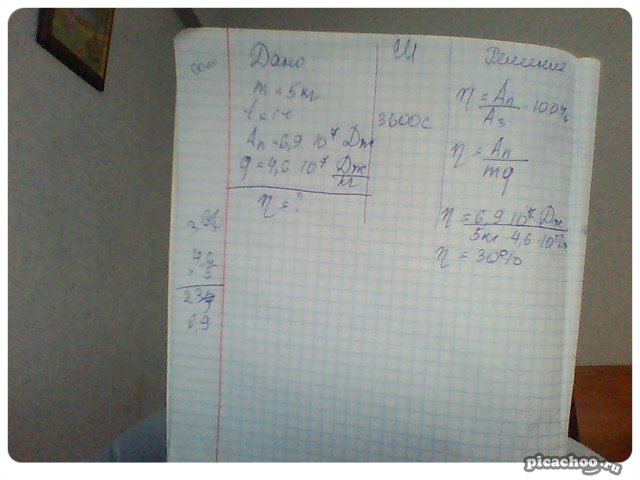 Дано
m = 5 кг
t = 1 ч
Aп = 6,9 10⁷ Дж
q = 4,6 10⁷ Дж/кг
η = ?
СИ
3600с
Решение
η = Aп/Aз · 100%
η = Aп/mq
η = 6,9 10⁷ Дж / 5кг · 4,6 10⁷
η = 30%
4,6
5
6,9
picachoo.ru